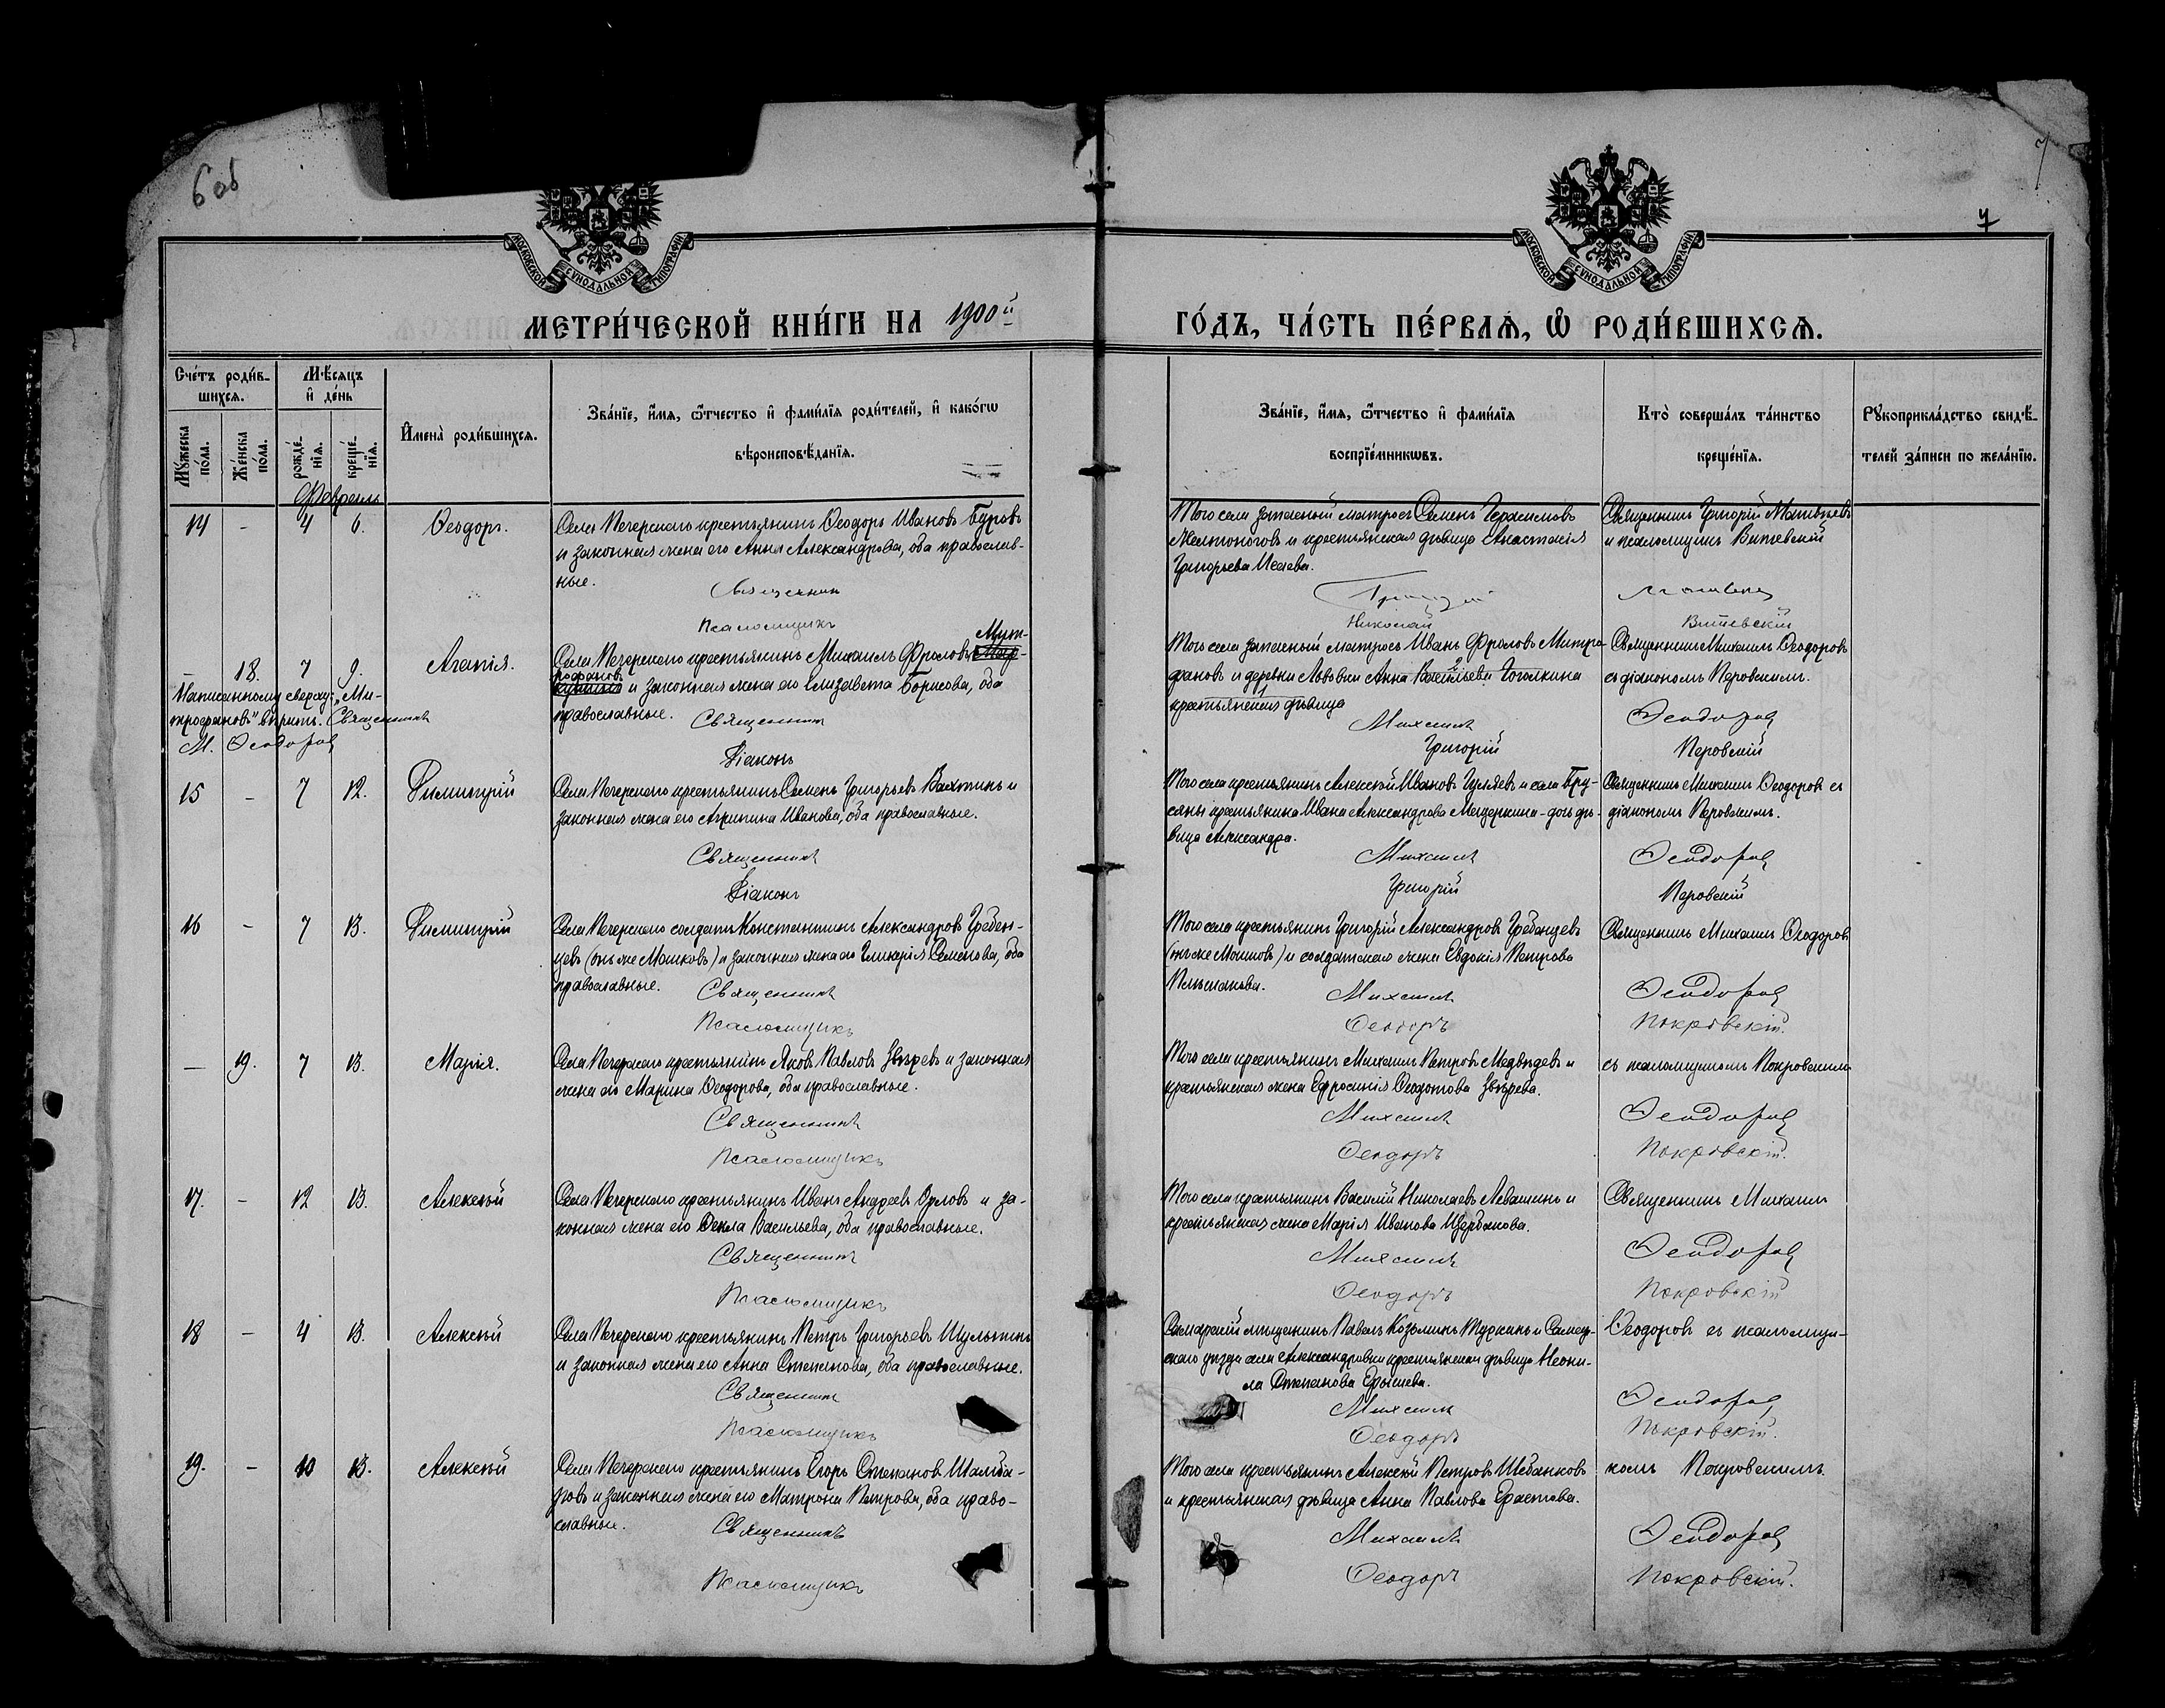 6 об
7
МОСКОВСКОЙ СѴНОДАЛЬНОЙ ТИПОГРАФІИ
МОСКОВСКОЙ СѴНОДАЛЬНОЙ ТИПОГРАФІИ
МЕТРИ́ЧЕСКОЙ КНИ́ГИ НА 1900й
ГО́ДЪ, ЧА́СТЬ ПЕ́РВАѦ, Ѽ РОДИ́ВШИХСѦ.
Сче́тъ роди́в-
шихсѧ.
Мѣ́сѧцъ
и҆ де́нь
Мꙋ́жеска
по́ла.
Же́нска
по́ла.
рожде́-
нїѧ.
креще́-
нїѧ.
И҆мена̀ роди́вшихсѧ.
Зва́нїе, и҆́мѧ, ѻ҆́тчество и҆ фами́лїѧ роди́телей, и҆ како́гѡ
вѣроисповѣ́данїѧ.
Зва́нїе, и҆́мѧ, ѻ҆́тчество и҆ фами́лїѧ
воспрїе́мникѡвъ.
Кто̀ соверша́лъ та́инство
креще́нїѧ.
Рꙋкоприкла́дство свидѣ́-
телей за́писи по жела́нїю.
Февраль
14 - 4 6. Ѳеодоръ.
Села Печерскаго крестьянинъ Ѳеодоръ Ивановъ Буровъ
и законная жена его Анна Александрова, оба православ-
ные.
Священникъ
Псаломщикъ
Того села запасной матросъ Семенъ Герасимовъ
Желтоноговъ и крестьянская дѣвица Анастасія
Григорьева Исаева.
Григорій
Николай
Священникъ Григорій Матвѣевъ
и псаломщикъ Витевскій
Матвѣевъ
Витевскій
— 18. 7 9. Агапія.
Написанному сверху: „Ми-
трофановъ" вѣрить. Священникъ
М. Ѳеодоровъ
Села Печерскаго крестьянинъ Михаилъ Фроловъ Мит-
рофановъ и законная жена его Елизавета Борисова, оба
православные.
Священникъ
Діаконъ
Того села запасный матросъ Иванъ Фроловъ Митро-
фановъ и деревни Львовки Анна Васильева Гоголкина
крестьянская дѣвица
Михаилъ
Григорій
Священникъ Михаилъ Ѳеодоровъ
съ діакономъ Перовскимъ.
Ѳеодоровъ
Перовскій
15 - 7 12. Димитрій
Села Печерскаго крестьянинъ Семенъ Григорьевъ Вахтинъ и
законная жена его Агрипина Иванова, оба православные.
Священникъ
Діаконъ
Того села крестьянинъ Алексѣй Ивановъ Гуляевъ и села Бру-
сяны крестьянина Ивана Александрова Мещеркина - дочь дѣ-
вица Александра.
Михаилъ
Григорій
Священникъ Михаилъ Ѳеодоровъ съ
діакономъ Перовскимъ.
Ѳеодоровъ
Перовскій
16 - 7 13. Димитрій
Села Печерскаго солдатъ Константинъ Александровъ Гребен-
цевъ (онъ же Машковъ) и законная жена его Гликерія Семенова, оба
православные.
Священникъ
Псаломщикъ
Того села крестьянинъ Григорій Александровъ Гребенцевъ
(онъ же Машковъ) и солдатская жена Евдокія Петрова
Михаилъ
Ѳеодоръ
Священникъ Михаилъ Ѳеодоровъ
Ѳеодоровъ
Покровскій.
— 19. 7 13. Марія.
Села Печерскаго крестьянинъ Яковъ Павловъ Звѣревъ и законная
жена его Марина Ѳеодорова, оба православные.
Священникъ
Псаломщикъ
Того села крестьянинъ Михаилъ Петровъ Медвѣдевъ и
крестьянская жена Ефросинія Ѳедотова Звѣрева.
Михаилъ
Ѳеодоръ
съ псаломщикомъ Покровскимъ
Ѳеодоровъ
Покровскій.
17. - 12 13. Алексѣй
Села Печерскаго крестьянинъ Иванъ Андреевъ Орловъ и за-
конная жена его Ѳекла Васильева, оба православные.
Священникъ
Псаломщикъ
Того села крестьянинъ Василій Николаевъ Левашинъ и
крестьянская жена Марія Иванова Щербакова.
Михаилъ
Ѳеодоръ
Священникъ Михаилъ
Ѳеодоровъ
Покровскій
18 - 4 13. Алексѣй
Села Печерскаго крестьянинъ Петръ Григорьевъ Шульгинъ
и законная жена его Анна Степанова, оба православные.
Священникъ
Псаломщикъ
Самарскій мѣщанинъ Павелъ Козьминъ Туркинъ и Самар-
скаго уѣзда села Александровки крестьянская дѣвица Неони-
ла Степанова Ерышева.
Михаилъ
Ѳеодоръ
Ѳеодоровъ съ псаломщи-
Ѳеодоровъ
Покровскій.
19. - 10 13. Алексѣй
Села Печерскаго крестьянинъ Егоръ Степановъ Шамба-
ровъ и законная жена его Матрона Петрова, оба право-
славные.
Священникъ
Псаломщикъ
Того села крестьянинъ Алексѣй Петровъ Шебанковъ
и крестьянская дѣвица Анна Павлова Ерастова.
Михаилъ
Ѳеодоръ
комъ Покровскимъ.
Ѳеодоровъ
Покровскій.